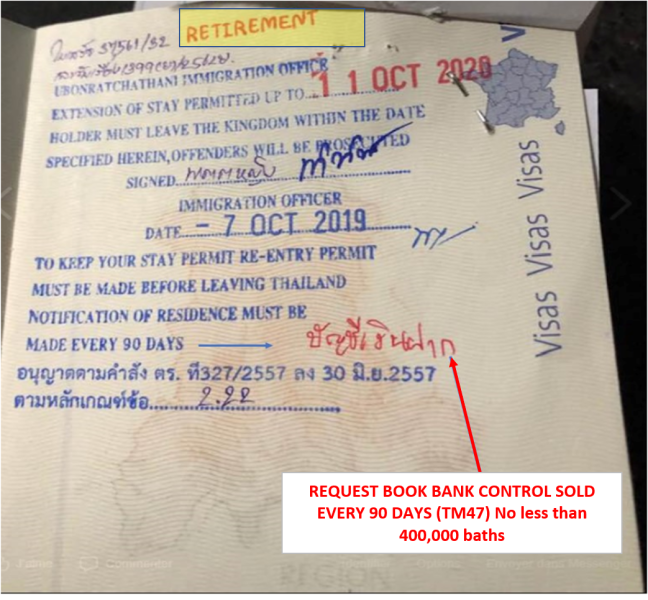 RETIREMENT
ใบเสร็จ 37561/32
UBONRATCHATHANI IMMIGRATION OFFICE
EXTENSION OF STAY PERMITTED UP TO 11 OCT 2020
HOLDER MUST LEAVE THE KINGDOM WITHIN THE DATE
SPECIFIED HEREIN, OFFENDERS WILL BE PROSECUTED
SIGNED
IMMIGRATION OFFICER
DATE - 7 OCT 2019
TO KEEP YOUR STAY PERMIT RE-ENTRY PERMIT
MUST BE MADE BEFORE LEAVING THAILAND
NOTIFICATION OF RESIDENCE MUST BE
MADE EVERY 90 DAYS บัญชีเงินฝาก
อนุญาตตามคำสั่ง ตร. ที่327/2557 ลง 30 มิ.ย.2557
ตามหลักเกณฑ์ข้อ 2.22
Visas Visas Visas V
REQUEST BOOK BANK CONTROL SOLD
EVERY 90 DAYS (TM47) No less than
400,000 baths
REGION